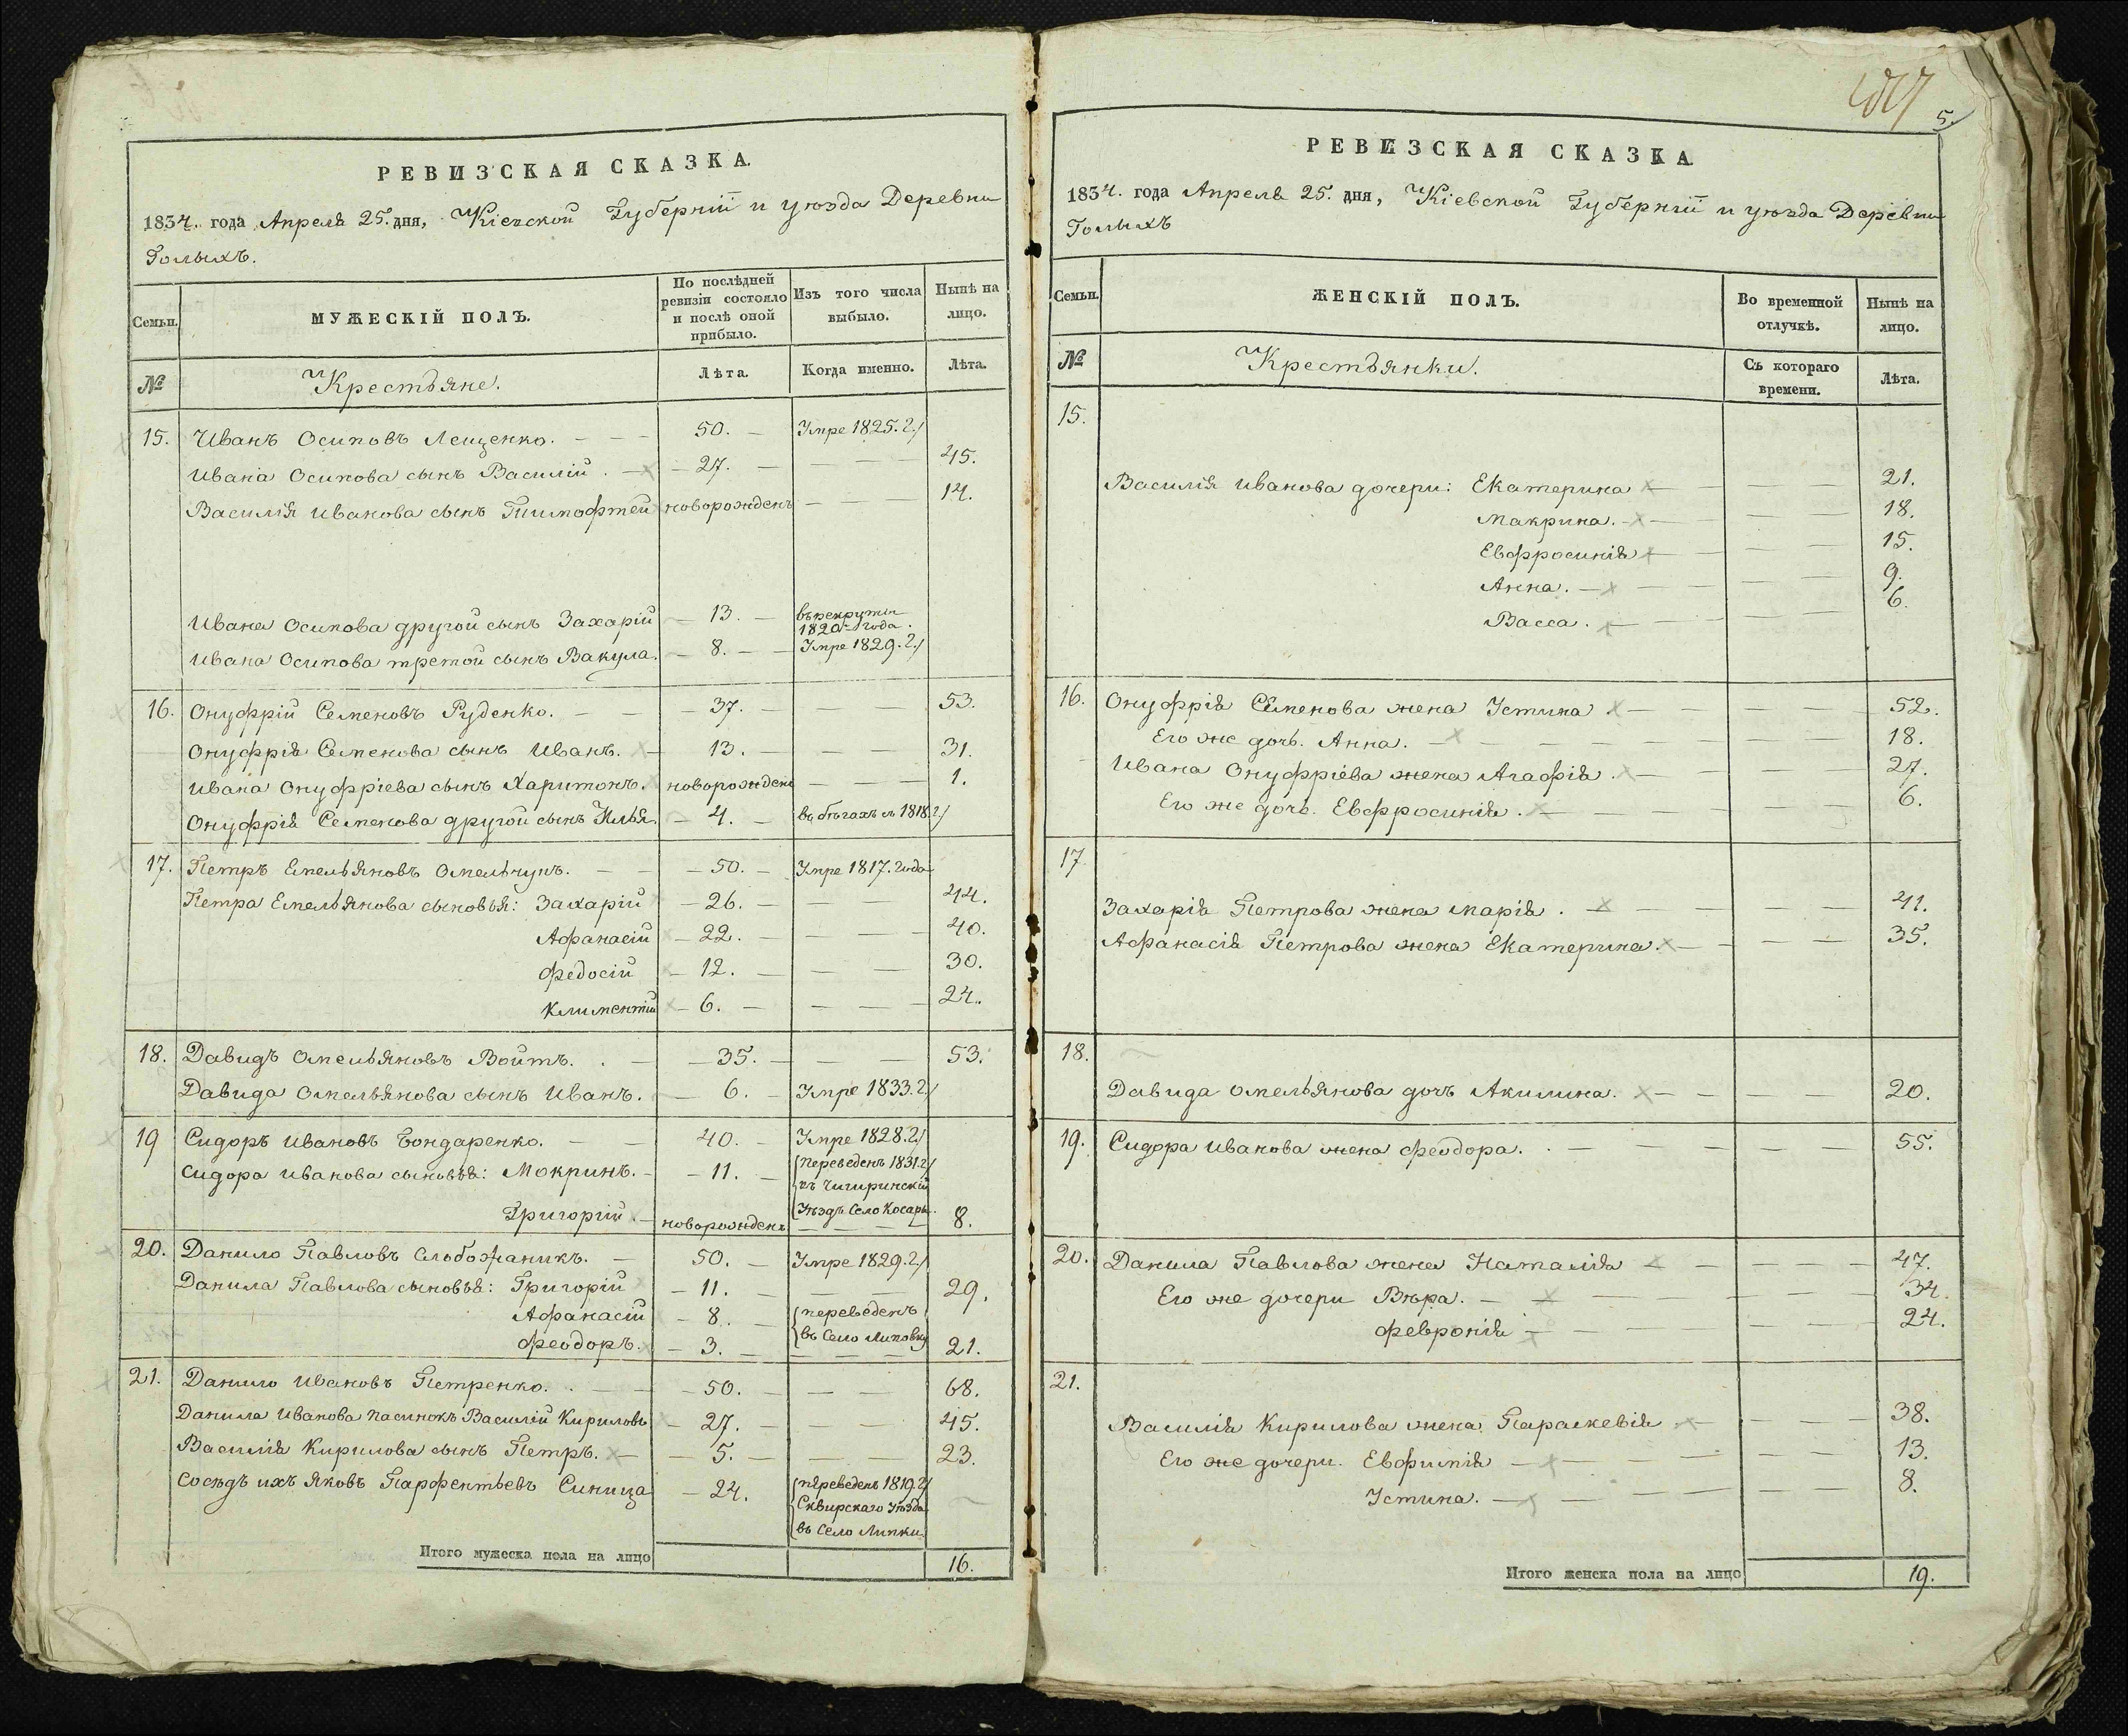 РЕВИЗСКАЯ СКАЗКА.
1834. года Апреля 25. дня, Кіевской Губерніи и уѣзда Деревни
Голыхъ.
Семьи.
МУЖЕСКІЙ ПОЛЪ.
По послѣдней ревизіи состояло и послѣ оной прибыло.
Изъ того числа выбыло.
Нынѣ на лицо.
№
Крестьяне.
Лѣта.
Когда именно.
Лѣта.
15. Иванъ Осиповъ Лещенко. 50. Умре 1825. г.
Ивана Осипова сынъ Василій. 27. 45.
Василія Иванова сынъ Тимофтей новорожденъ 14.
Ивана Осипова другой сынъ Захарій 13. въ рекруты 1820 года.
Ивана Осипова третой сынъ Вакула. 8. Умре 1829. г.
16. Онуфрій Семеновъ Руденко. 37. 53.
Онуфрія Семенова сынъ Иванъ. 13. 31.
Ивана Онуфріева сынъ Харитонъ. новорожденъ 1.
Онуфрія Семенова другой сынъ Илья. 4. въ бѣгахъ съ 1818. г.
17. Петръ Емельяновъ Омельчукъ. 50. Умре 1817. года
Петра Емельянова сыновья: Захарій 26. 44.
Афанасій 22. 40.
Федосій 12. 30.
Климентій 6. 24.
18. Давидъ Омельяновъ Войтъ. 35. 53.
Давида Омельянова сынъ Иванъ. 6. Умре 1833. г.
19 Сидоръ Ивановъ Бондаренко. 40. Умре 1828. г.
Сидора Иванова сыновья: Мокринъ. 11. переведенъ 1831. г.
въ Чигиринскій
Уѣздъ Село Косары.
Григорій новорожденъ 8.
20. Данило Павловъ Слобожаникъ. 50. Умре 1829. г.
Данила Павлова сыновья: Григорій 11. 29.
Афанасій 8. переведенъ
въ Село Липовку
Феодоръ. 3. 21.
21. Данило Ивановъ Петренко. 50. 68.
Данила Иванова пасынокъ Василій Кириловъ 27. 45.
Василія Кирилова сынъ Петръ. 5. 23.
Сосѣдъ ихъ Яковъ Парфентьевъ Синица 24. переведенъ 1819. г.
Сквирскаго Уѣзда
въ Село Липки.
Итого мужеска пола на лицо 16.
5.
РЕВИЗСКАЯ СКАЗКА
1834. года Апреля 25. дня, Кіевской Губерніи и уѣзда Деревни
Голыхъ
Семьи.
ЖЕНСКІЙ ПОЛЪ.
Во временной отлучкѣ.
Нынѣ на лицо.
№
Крестьянки.
Съ котораго времени.
Лѣта.
15.
Василія Иванова дочери: Екатерина 21.
Макрина. 18.
Евфросинія 15.
Анна. 9.
Васса. 6.
16. Онуфрія Семенова жена Устина 52.
Его же дочь. Анна. 18.
Ивана Онуфріева жена Агафія. 27.
Его же дочь. Евфросинія. 6.
17
Захарія Петрова жена Марія. 41.
Афанасія Петрова жена Екатерина. 35.
18.
Давида Омельянова дочь Акилина. 20.
19. Сидора Иванова жена Феодора. 55.
20. Данила Павлова жена Наталія 47.
Его же дочери Вѣра. 34.
Февронія 24.
21.
Василія Кирилова жена Параскевія 38.
Его же дочери. Евфимія 13.
Устина. 8.
Итого женска пола на лицо 19.